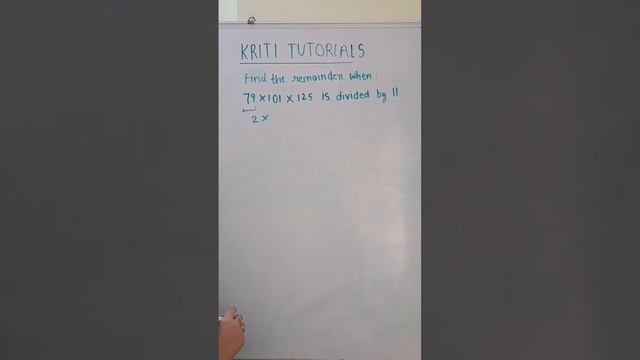 KRITI TUTORIALS
Find the remainder when:
79 × 101 × 125 is divided by 11
2 ×